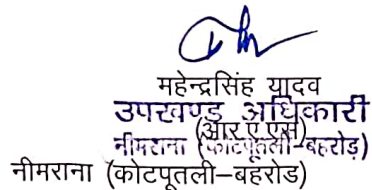 महेन्द्रसिंह यादव
उपखण्ड अधिकारी
(आर ए एस)
नीमराना (कोटपूतली-बहरोड़)
नीमराना (कोटपूतली-बहरोड)